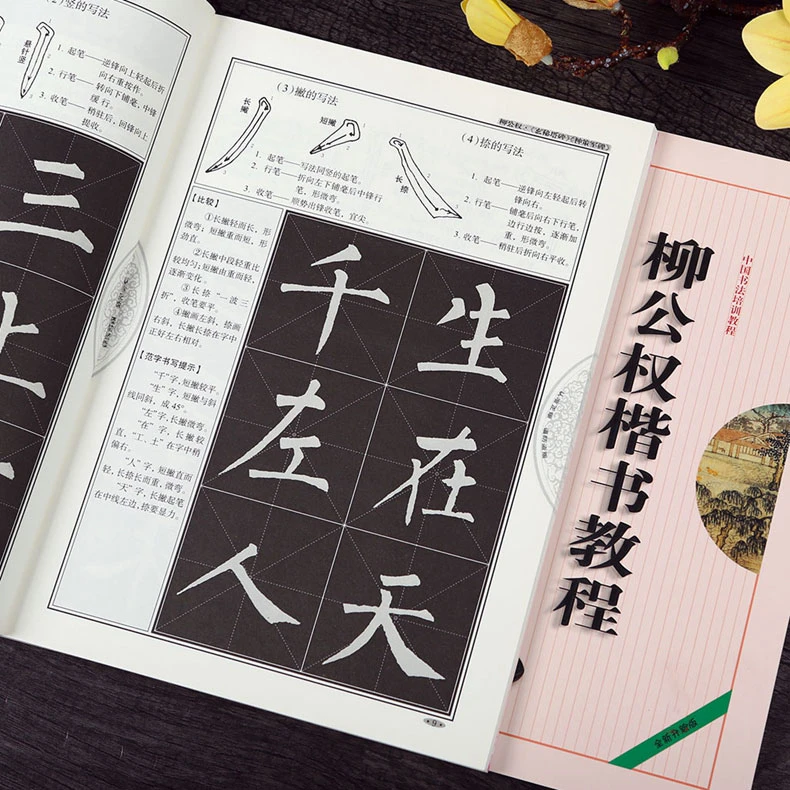 (2)竖的写法
悬针竖
1. 起笔——逆锋向上轻起后折
向右重按作。
2. 行笔——转向下铺毫,中锋
缓行。
3. 收笔——稍驻后,回锋向上
提收。
三
上
柳公权·《玄秘塔碑》《神策军碑》
(3)撇的写法
长撇
短撇
1. 起笔——写法同竖的起笔。
2. 行笔——折向左下铺毫后中锋行
笔,形微弯。
3. 收笔——顺势出锋收笔,宜尖。
(4)捺的写法
长捺
1. 起笔——逆锋向左轻起后转
锋向右。
2. 行笔——铺毫后向右下行笔,
边行边按,逐渐加
重,形微弯。
3. 收笔——稍驻后折向右平收。
【比较】
①长撇轻而长,形
微弯;短撇重而短,形
劲直。
②长撇中段轻重比
较均匀;短撇由重而轻,
逐渐变化。
③长捺“一波三
折”,收笔要平。
④撇画左斜,捺画
右斜,长撇长捺在字中
正好左右相对。
【范字书写提示】
“千”字,短撇较平。
“生”字,短撇与斜
线同斜,成45°。
“左”字,长撇微弯。
“在”字,长撇较
直,“工、土”在字中稍
偏右。
“人”字,短撇直而
轻,长捺长而重,微弯。
“天”字,长撇起笔
在中线左边,捺要显力。
千
生
左
在
人
天
9
中国书法培训教程
柳公权楷书教程
全新升级版